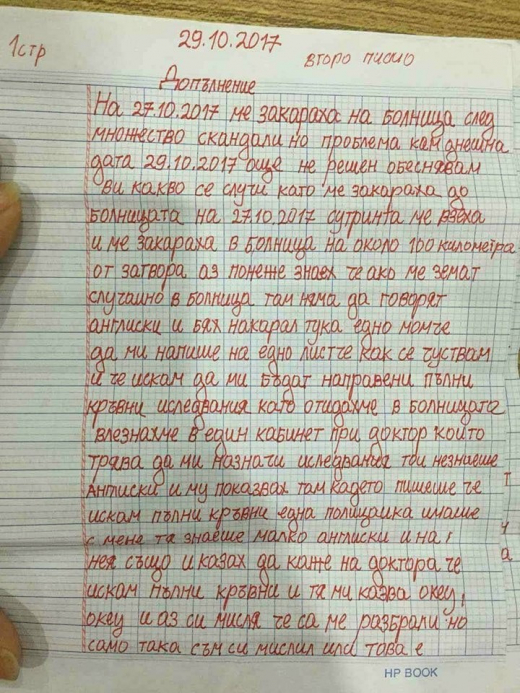 1стр
29.10.2017
второ писмо
Допълнение
На 27.10.2017 ме закараха на болница след
множество скандали но проблема към днешна
дата 29.10.2017 още не решен обеснявам
ви какво се случи като ме закараха до
болницата на 27.10.2017 сутринта ме взеха
и ме закараха в болница на около 100 километра
от затвора аз понеже знаех че ако ме земат
случайно в болница там няма да говорят
англиски и бях накарал тука едно момче
да ми напише на едно листче как се чуствам
и че искам да ми бъдат направени пълни
кръвни иследвания като отидохме в болницата
влезнахме в един кабинет при доктор който
трява да ми назначи иследвания той незнаеше
Англиски и му показвах там кадето пишеше че
искам пълни кръвни една полицаика имаше
с мене тя знаеше малко англиски и на
нея също и казах да каже на доктора че
искам пълни кръвни и тя ми казва окей,
окей и аз си мисля че са ме разбрали но
само така съм си мислил или това е
HP BOOK